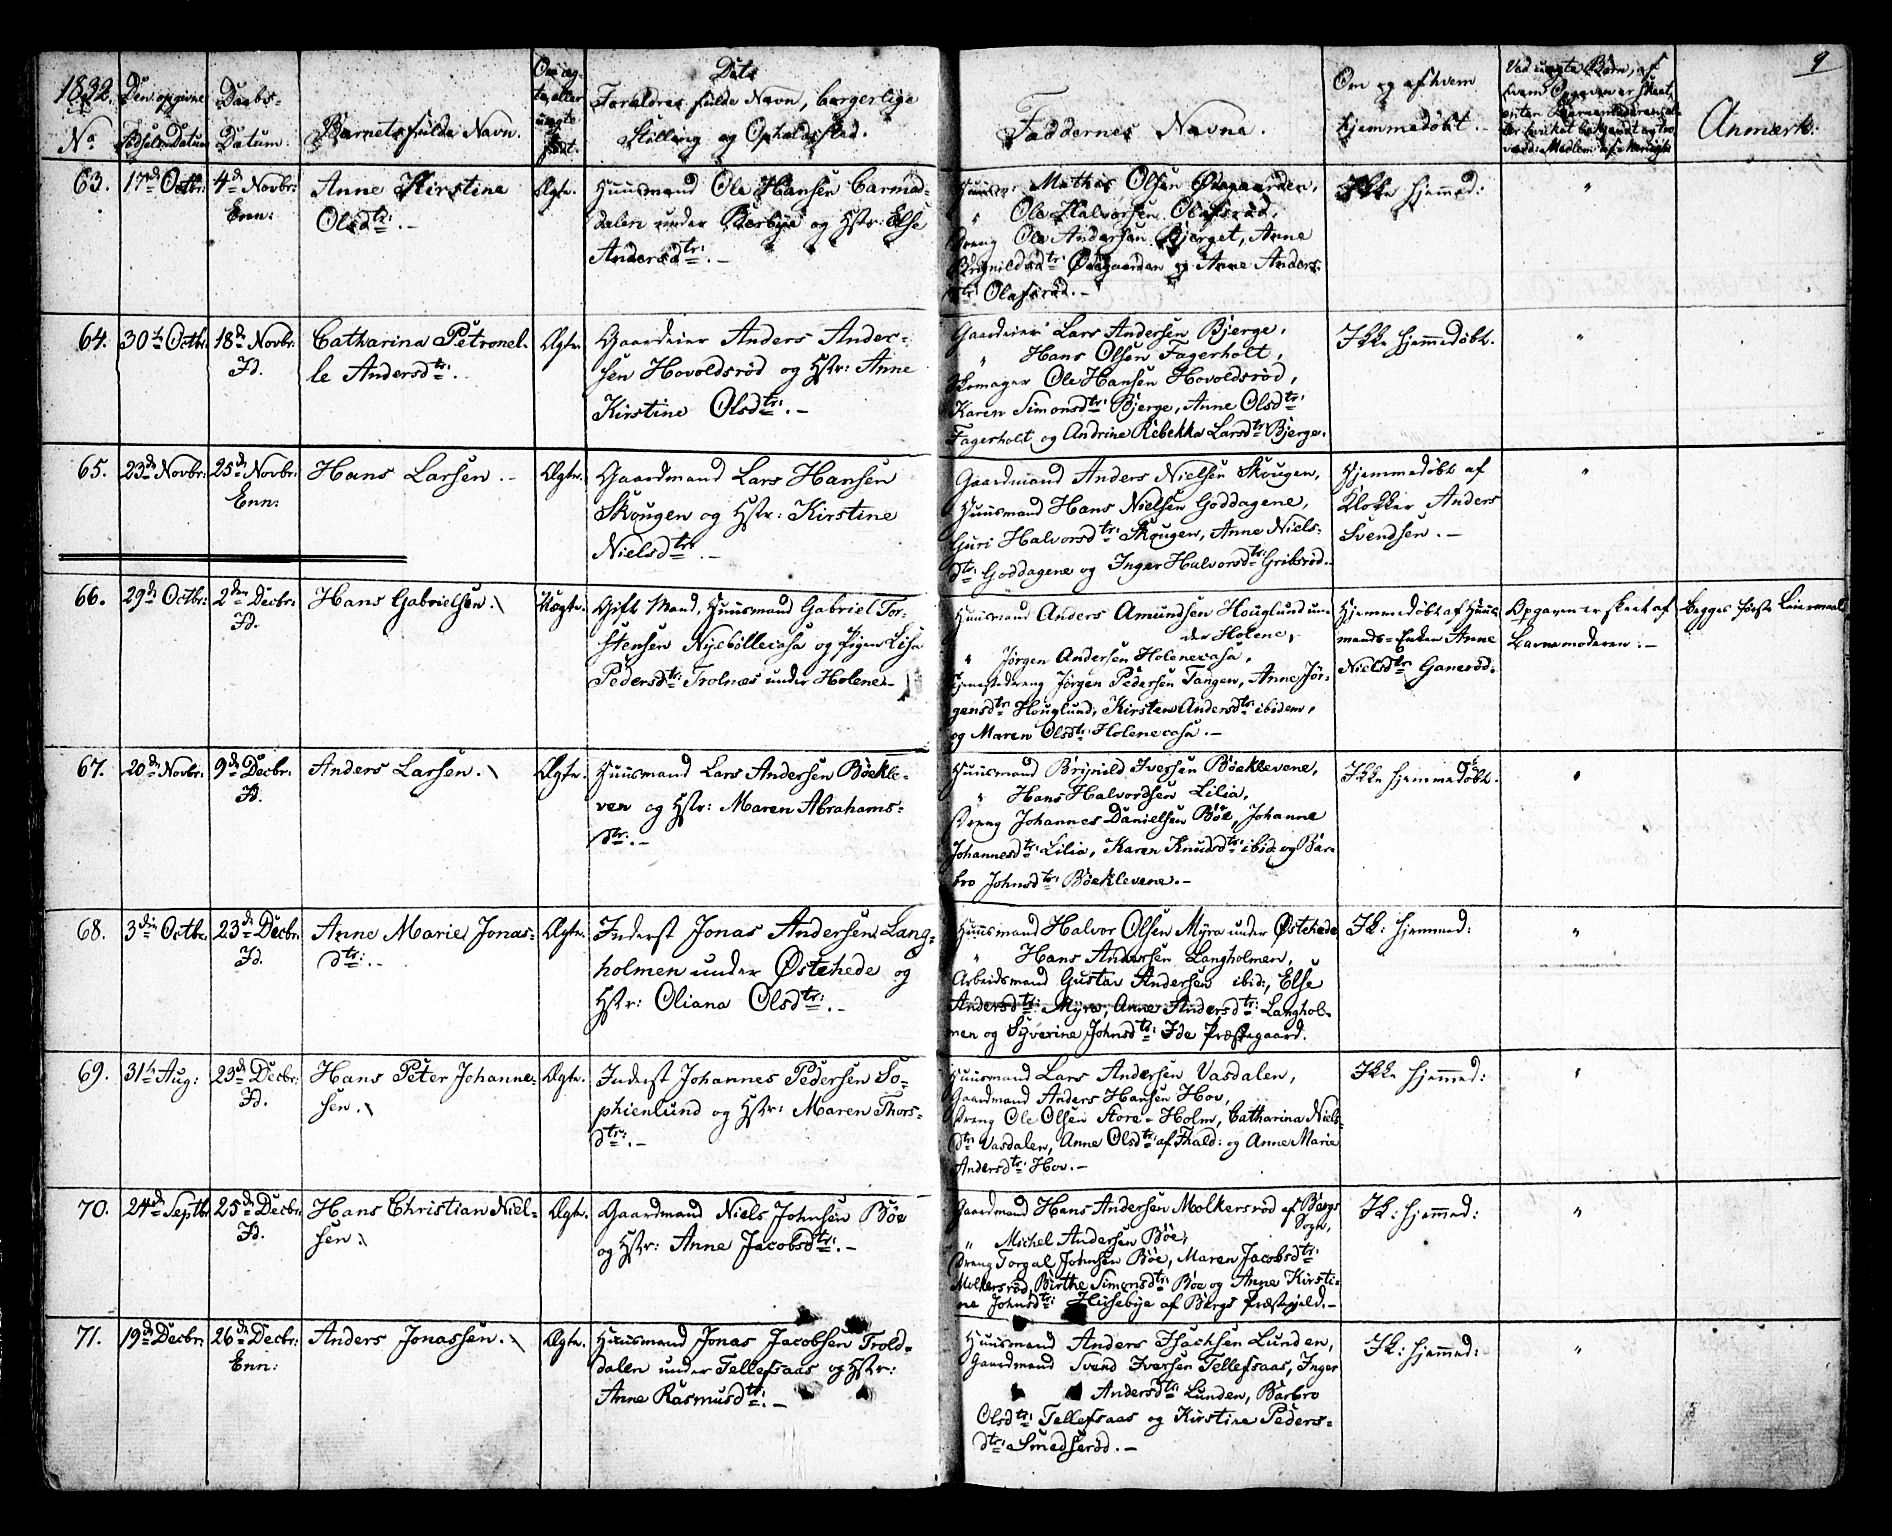 1832.
No
Den opgivne
Fødsels Datum
Daabs-
Datum:
Barnets fulde Navn.
Om æg-
te, eller
uægte
født.
Dets
Forældres fulde Navn, borgerlige
Stilling og Opholdssted.
Faddernes Navne.
Om og af hvem
hjemmedøbt.
Ved uægte Børn, af
hvem Opgaven er skeet,
enten Barnemoderen, el-
ler hvilket bekjendt og tro-
værd: Medlem af Menigh:
Anmærk:
9
63.
17de Octbr:
4de Novbr:
Enn:
Anne Kirstine
Olsdtr: .-
Ægte.
Huusmand Ole Hansen Carmad-
dalen under Berbye og Hstr: Else
Andersdtr: .-
Huusm: Mathis Olsen Ødegaarden,
" Ole Halvorsen Olafsrød,
Dreng Ole Andersen Bjerget, Anne
Brynildsdtr: Ødegaarden og Anne Anders-
dtr: Olafsrød.-
Ikke hjemmed:
"
64.
30te Octbr:
18de Novbr:
Id.
Catharina Petronel-
le Andersdtr: .
Ægte.
Gaardeier Anders Ander-
sen Hovoldsrød og Hstr: Anne
Kirstine Olsdtr: .-
Gaardeier Lars Andersen Bjerge,
" Hans Olsen Fagerholt,
Skomager Ole Hansen Hovoldsrød,
Karen Simonsdtr: Bjerge, Anne Olsdtr:
Fagerholt og Andrine Rebekka Larsdtr: Bjerge.
Ikke hjemmedøbt.
"
65.
23de Novbr:
25de Novbr:
Enn:
Hans Larsen .-
Ægte.
Gaardmand Lars Hansen
Skougen og Hstr: Kirstine
Nielsdtr: .-
Gaardmand Anders Nielsen Skougen,
Huusmand Hans Nielsen Goddagene,
Guri Halvorsdtr: Skougen, Anne Niels-
dtr: Goddagene og Inger Halvorsdtr: Gribsrød.
Hjemmedøbt af
Klokker Anders
Svendsen. -
"
66.
29de Octbr:
2den Decbr:
Id.
Hans Gabrielsen.
Uægte.
Gift Mand, Huusmand Gabriel Tor-
stensen Nyebøllecasa og Pigen Lisa
Pedersdtr: Trolnæs under Holene.-
Huusmand Anders Amundsen Houglund un-
der Holene,
" Jørgen Andersen Holenecasa,
Tjenestedreng Jørgen Pedersen Tangen, Anne Jør-
gensdtr: Houglund, Kirsten Andersdtr: ibidem,
og Maren Olsdtr: Holenecasa. -
Hjemmedøbt af Huus-
mands-Enken Anne
Nielsdtr: Ganerød.
Opgaven er skeet af
Barnemoderen. -
Begges første Leiermaal
67.
20de Novbr:
9de Decbr:
Id.
Anders Larsen.
Ægte.
Huusmand Lars Andersen Bøekle-
ven og Hstr: Maren Abrahams-
dtr: .-
Huusmand Brynild Iversen Bøeklevene,
" Hans Halvordsen Lilia,
Dreng Johannes Danielsen Bøe, Johanne
Johannesdtr: Lilia, Karen Knudsdtr: ibid: og Bar-
bro Johnsdtr: Bøeklevene. -
Ikke hjemmedøbt.
"
68.
3die Octbr:
23de Decbr:
Id.
Anne Marie Jonas-
dtr: .-
Ægte.
Inderst Jonas Andersen Lang-
holmen under Østehede og
Hstr: Oliana Olsdtr: .-
Huusmand Halvor Olsen Myra under Østehede
" Hans Andersen Langholmen,
Arbeidsmand Gustav Andersen ibid:, Else
Andersdtr: Myra, Anne Andersdtr: Langhol-
men og Syverine Johnsdtr: Ide Præstegaard.
Ik: hjemmed:
"
69.
31te Aug:
23de Decbr:
Id.
Hans Peter Johanne-
sen.
Ægte.
Inderst Johannes Pedersen So-
phienlund og Hstr: Maren Thors-
dtr: .-
Huusmand Lars Andersen Vasdalen,
Gaardmand Anders Hansen Hov,
Dreng Ole Olsen Store-Holm, Catharina Niels-
dtr: Vasdalen, Anne Olsdtr: af Fhald: og Anne Marie
Andersdtr: Hov. -
Ikke hjemmed:
"
70.
24de Septbr:
25de Decbr:
Id.
Hans Christian Niel-
sen.
Ægte.
Gaardmand Niels Johnsen Bøe
og Hstr: Anne Jacobsdtr: .-
Gaardmand Hans Andersen Molkersrød af Bergs
Sogn,
" Michel Andersen Bøe,
Dreng Torgal Johnsen Bøe, Maren Jacobsdtr:
Molkersrød, Birthe Simonsdtr: Bøe og Anne Kirsti-
ne Johnsdtr: Husebye af Bergs Præstegjeld. -
Ik: hjemmed:
"
71.
19de Decbr:
26de Decbr:
Enn:
Anders Jonassen.
Ægte.
Huusmand Jonas Jacobsen Trold-
dalen under Tellefsaas og Hstr:
Anne Rasmusdtr: .-
Huusmand Anders Isachsen Lunden,
Gaardmand Svend Iversen Tellefsaas, Inger
Andersdtr: Lunden, Barbro
Olsdtr: Tellefsaas og Kirstine Peders-
dtr: Smedserød. -
Ik: hjemmed:
"